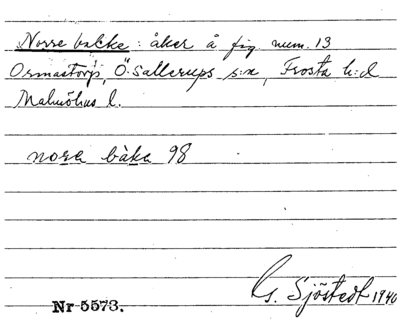 Norre bakke: åker å fig. num. 13
Ormastorp, Ö. Sallerups s:n, Frosta h:d
Malmöhus l.
nora bàka 98
G. Sjöstedt 1940
Nr 5573.